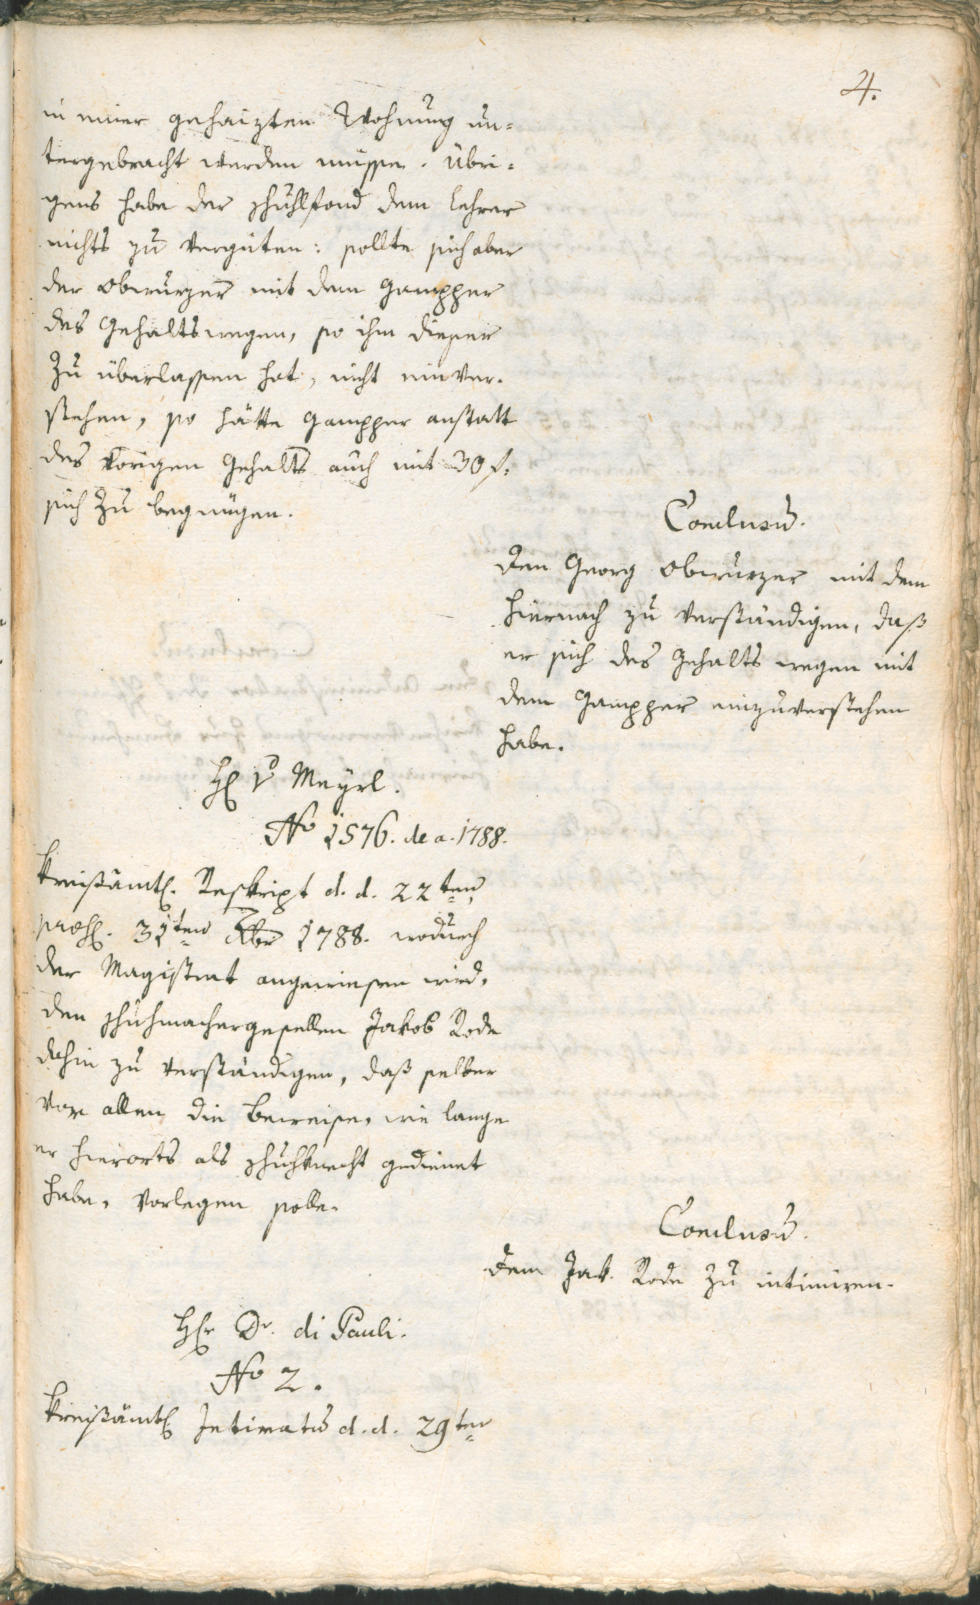 4.
in einer gehaizten Wohnung un-
tergebracht werden müsse. Übri-
gens habe der schuhlfond dem Lehrer
nichts zu verguten: sollte sich aber
der Obwurzer mit dem Gampper
des Gehalts wegen, so ihm dieser
zu überlassen hat, nicht einver-
stehen, so hätte Gampper anstatt
des vorigen Gehalts auch mit 30 f.
sich zu begnügen.
Conclusum.
Dem Georg Obwurzer mit dem
hiernach zu verständigen, daß
er sich des Gehalts wegen mit
dem Gampper einzuverstehen
habe.
H v Meyrl.
No 1576. de a. 1788.
Kreißämtl. Reskript d. d. 22ten,
praes. 31ten Xbr 1788. wodurch
der Magistrat angewiesen wird,
den schuhmachergesellen Jakob Rode
dahin zu verständigen, daß selber
vor allem die Beweise, wie lange
er hierorts als schuhknecht gedienet
habe, vorlegen solle.
Conclusum.
Dem Jak. Rode zu intimiren.
Hr Dr. di Pauli.
No 2.
Kreißämtl Intimatum d. d. 29ten